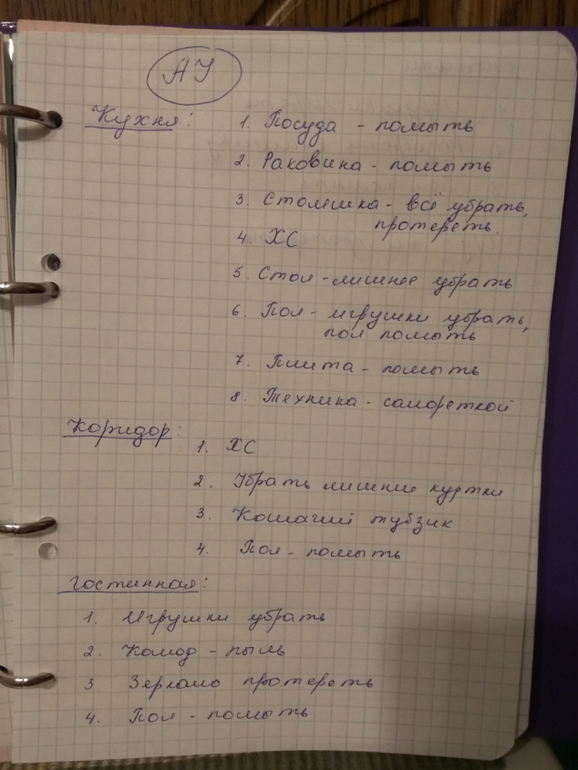 АУ
Кухня: 1. Посуда - помыть
2. Раковина - помыть
3. Столешка - всё убрать,
протереть.
4. ХС
5. Стол - лишнее убрать
6. Пол - игрушки убрать,
пол помыть
7. Плита - помыть
8. Техника - самореткой
Коридор: 1. ХС
2. Убрать лишние куртки
3. Кошачий тубзик
4. Пол - помыть
Гостинная:
1. Игрушки убрать
2. Комод - пыль
3 Зеркало протереть
4. Пол - помыть